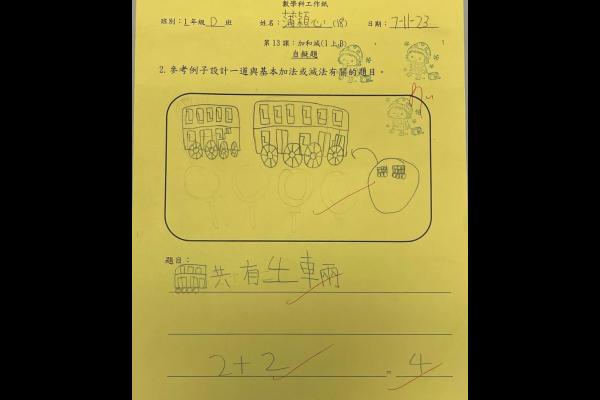 數學科工作紙
班別：1年級 D 班 姓名：潘穎心 (18) 日期：7-11-23
第13課：加和減(1上B)
自擬題
2. 參考例子設計一道與基本加法或減法有關的題目。
題目：
共有 車兩
2+2 = 4